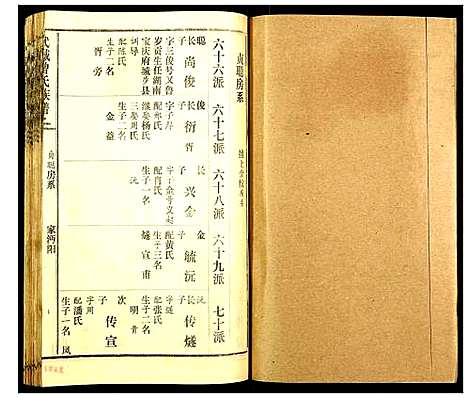 貞聰房系
六十六派
聰長子
尚俊
字三俊号又魯
岁贡生任湖南
宝庆府城步县
训导
配陈氏
生子二名
胥 旁
六十七派
俊長子
衍胥
字子寿
配郝氏
继娶杨氏
三娶周氏
生子二名
金 益
六十八派
長子
兴金
配肖氏
生子一名
沅
六十九派
金子
毓沅
配黄氏
生子三名
燧 宣 甫
七十派
沅長子
传燧
配张氏
生子二名
明 青
次子
传宣
字周
配潘氏
生子一名 凤
武城曾氏族谱
貞聰房系
家沔阳